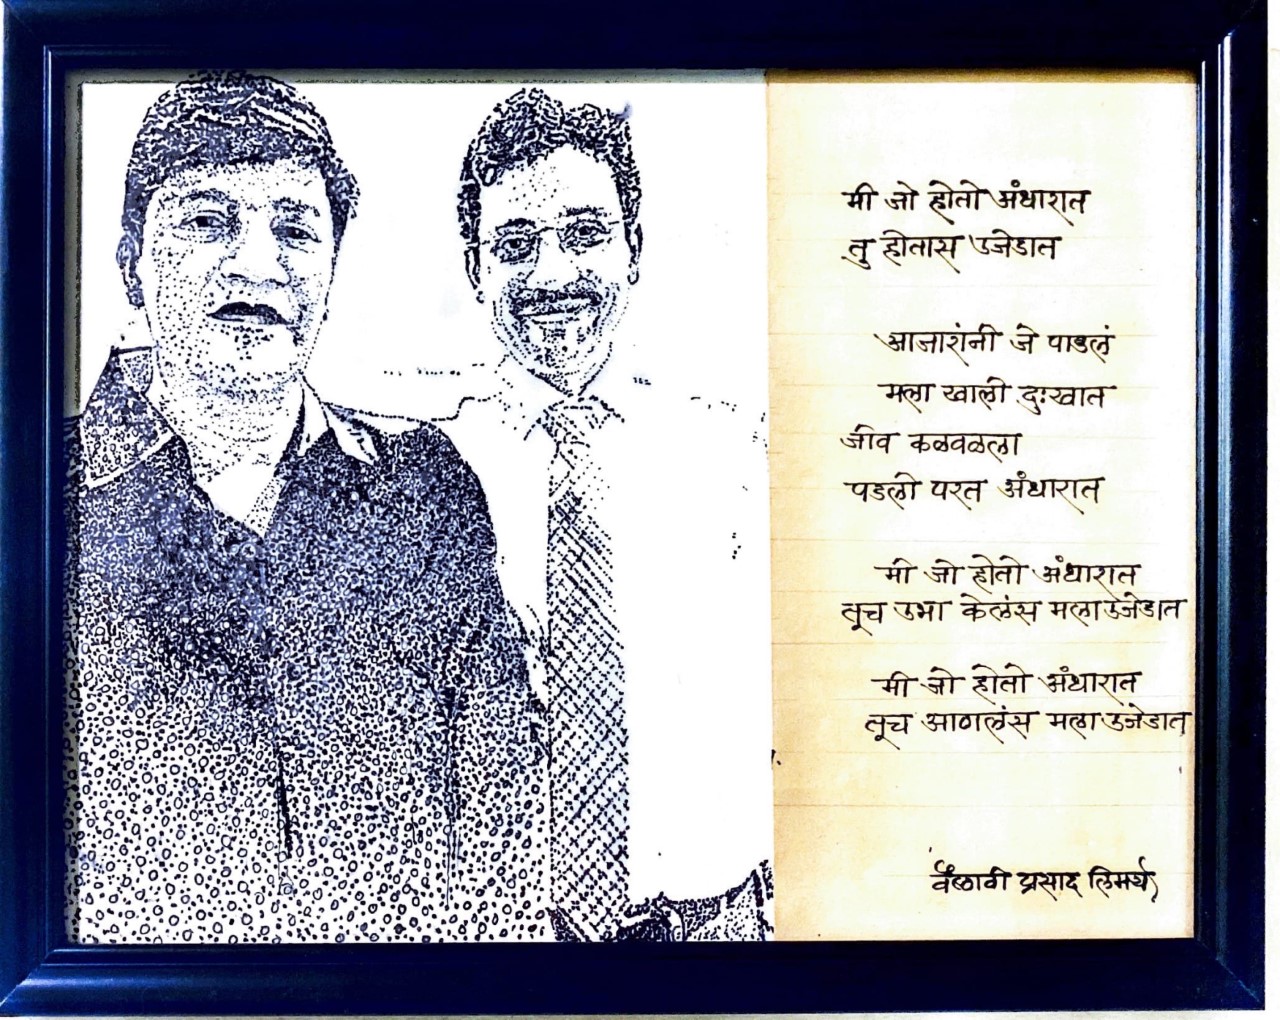 मी जो होतो अंधारात
तु होतास उजेडात
आजारांनी जे पाडलं
मला खाली दुःखात
जीव कळवळला
पडलो परत अंधारात
मी जो होतो अंधारात
तूच उभा केलंस मला उजेडात
मी जो होतो अंधारात
तूच आणलंस मला उजेडात
प्रसाद लिमये